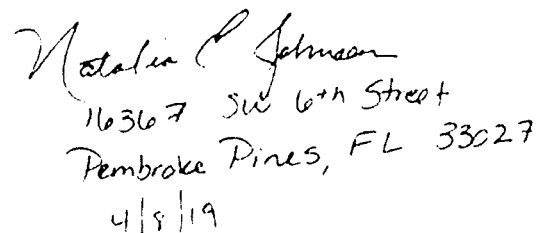 Natalia C Johnson
16367 SW 6th Street
Pembroke Pines, FL 33027
4/8/19